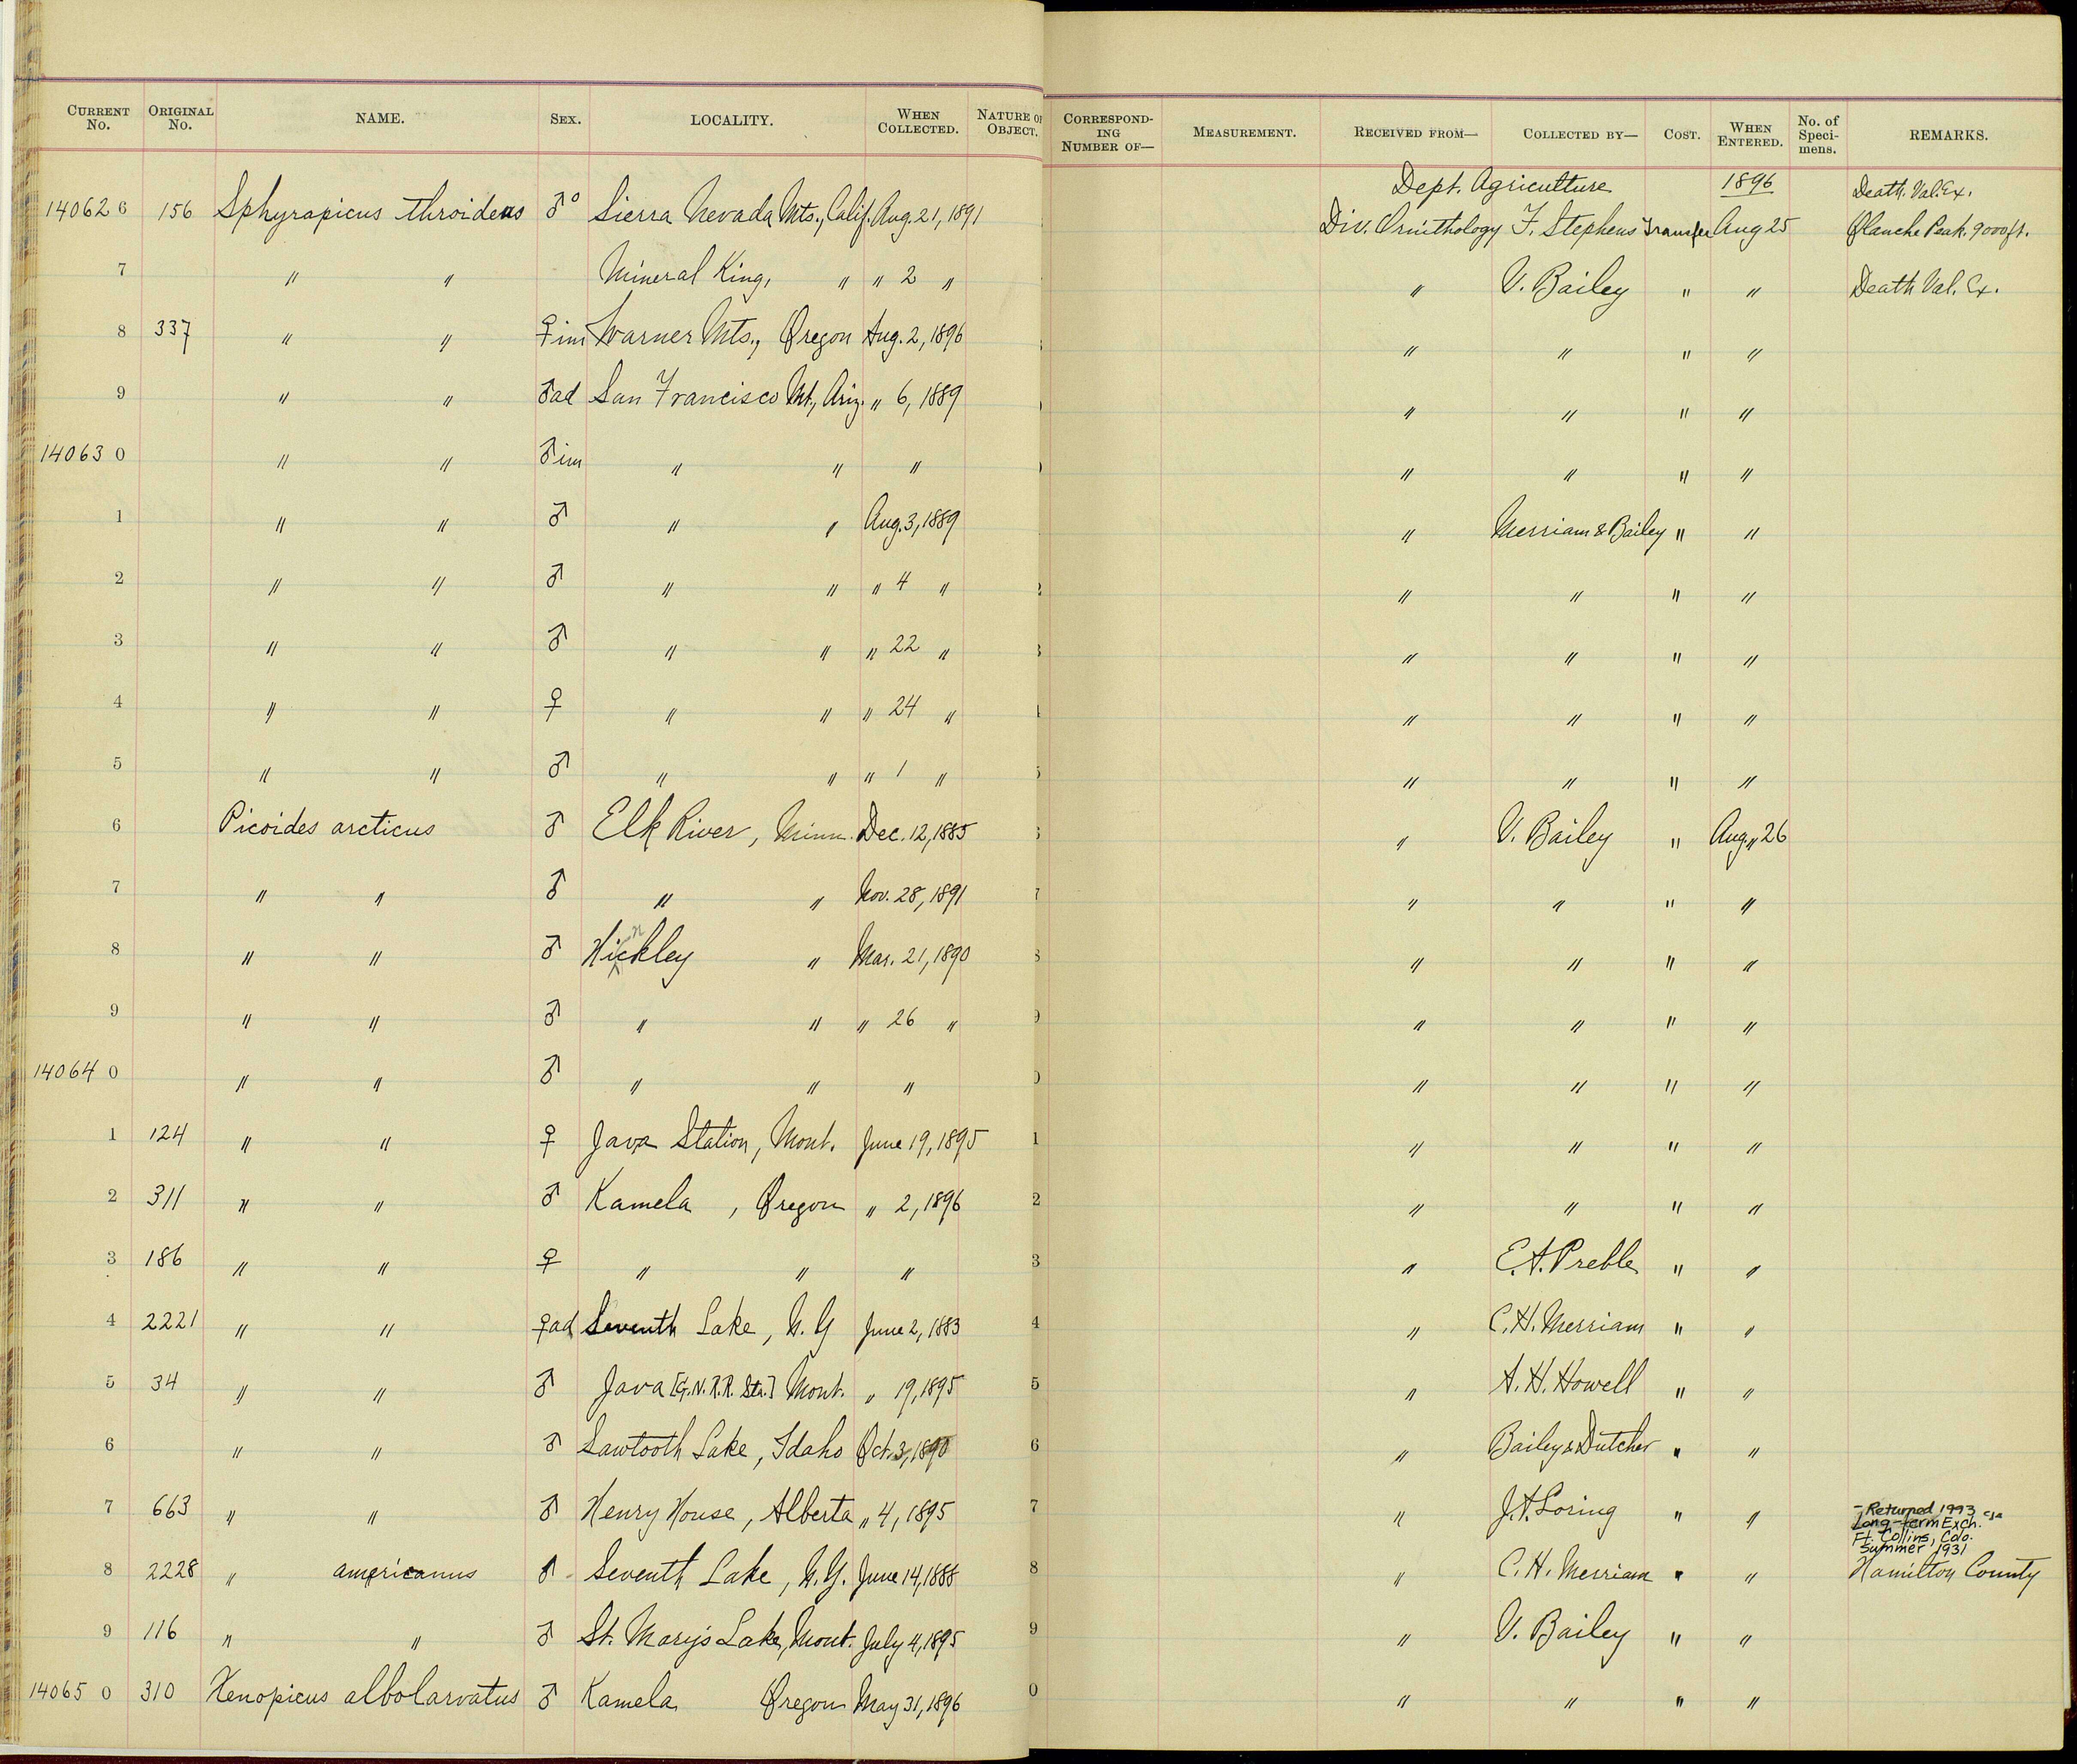 CURRENT No. ORIGINAL No. NAME. SEX. LOCALITY. WHEN COLLECTED. NATURE OF OBJECT. CORRESPONDING NUMBER OF— MEASUREMENT. RECEIVED FROM— COLLECTED BY— COST. WHEN ENTERED. No. of Specimens. REMARKS.
Dept. Agriculture 1896 Death. Val. Ex.
14062 6 156 Sphyrapicus throideus ♂° Sierra Nevada Mts., Calif. Aug. 21, 1891 Div. Ornithology F. Stephens Transfer Aug 25 Olanche Peak. 9000ft.
7 " " Mineral King, " " 2 " " V. Bailey " " Death Val. Ex.
8 337 " " ♀im Warner Mts., Oregon Aug. 2, 1896 " " " "
9 " " ♂ad San Francisco Mt., Ariz. " 6, 1889 " " " "
14063 0 " " ♂im " " " " " " "
1 " " ♂ " " Aug. 3, 1889 " Merriam & Bailey " "
2 " " ♂ " " " 4 " " " " "
3 " " ♂ " " " 22 " " " " "
4 " " ♀ " " " 24 " " " " "
5 " " ♂ " " " 1 " " " " "
6 Picoides arcticus ♂ Elk River, Minn. Dec. 12, 1885 " V. Bailey " Aug. " 26
7 " " ♂ " " Nov. 28, 1891 " " " "
8 " " ♂ Hinckley " Mar. 21, 1890 " " " "
9 " " ♂ " " " 26 " " " " "
14064 0 " " ♂ " " " " " " "
1 124 " " ♀ Java Station, Mont. June 19, 1895 1 " " " "
2 311 " " ♂ Kamela , Oregon " 2, 1896 2 " " " "
3 186 " " ♀ " " " 3 " E. A. Preble " "
4 2221 " " ♀ad Seventh Lake, N. Y June 2, 1883 4 " C. H. Merriam " "
5 34 " " ♂ Java [G. N. R. R. Sta.] Mont. " 19, 1895 5 " A. H. Howell " "
6 " " ♂ Sawtooth Lake, Idaho Oct. 3, 1890 6 " Bailey & Dutcher " "
7 663 " " ♂ Henry House, Alberta " 4, 1895 7 " J. A. Loring " " - Returned 1993
Long-term Exch.
Ft. Collins, Colo.
Summer 1931
8 2228 " americanus ♂ Seventh Lake, N. Y. June 14, 1888 8 " C. H. Merriam " " Hamilton County
9 116 " " ♂ St. Mary's Lake, Mont. July 4, 1895 9 " V. Bailey " "
14065 0 310 Xenopicus albolarvatus ♂ Kamela Oregon May 31, 1896 0 " " " "